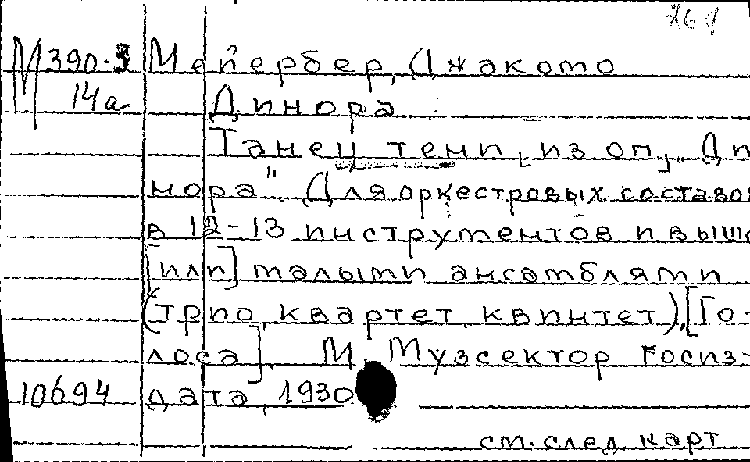 26 g
М390.3 Мейербер, Джакомо
14а Динора
Танец теми, [из оп.] „Ди-
нора". Для оркестровых составов
в 12-13 инструментов и выше
[или] малыми ансамблями
(трио, квартет, квинтет), [Го-
лоса]. М., Музсектор Госиз-
10694 дата, 1930
см. след. карт